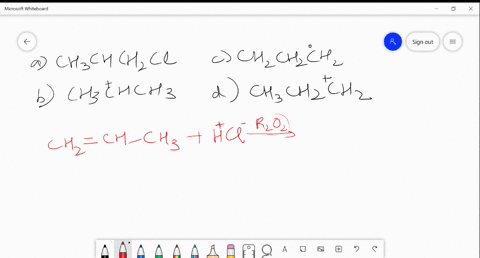 Microsoft Whiteboard
Sign out
a) CH3CHCH2Cl c) CH2CH2ĊH2
b) CH3C⁺HCH3 d) CH3CH2C⁺H2
CH2=CH-CH3 + H⁺Cl⁻ R2O2
A